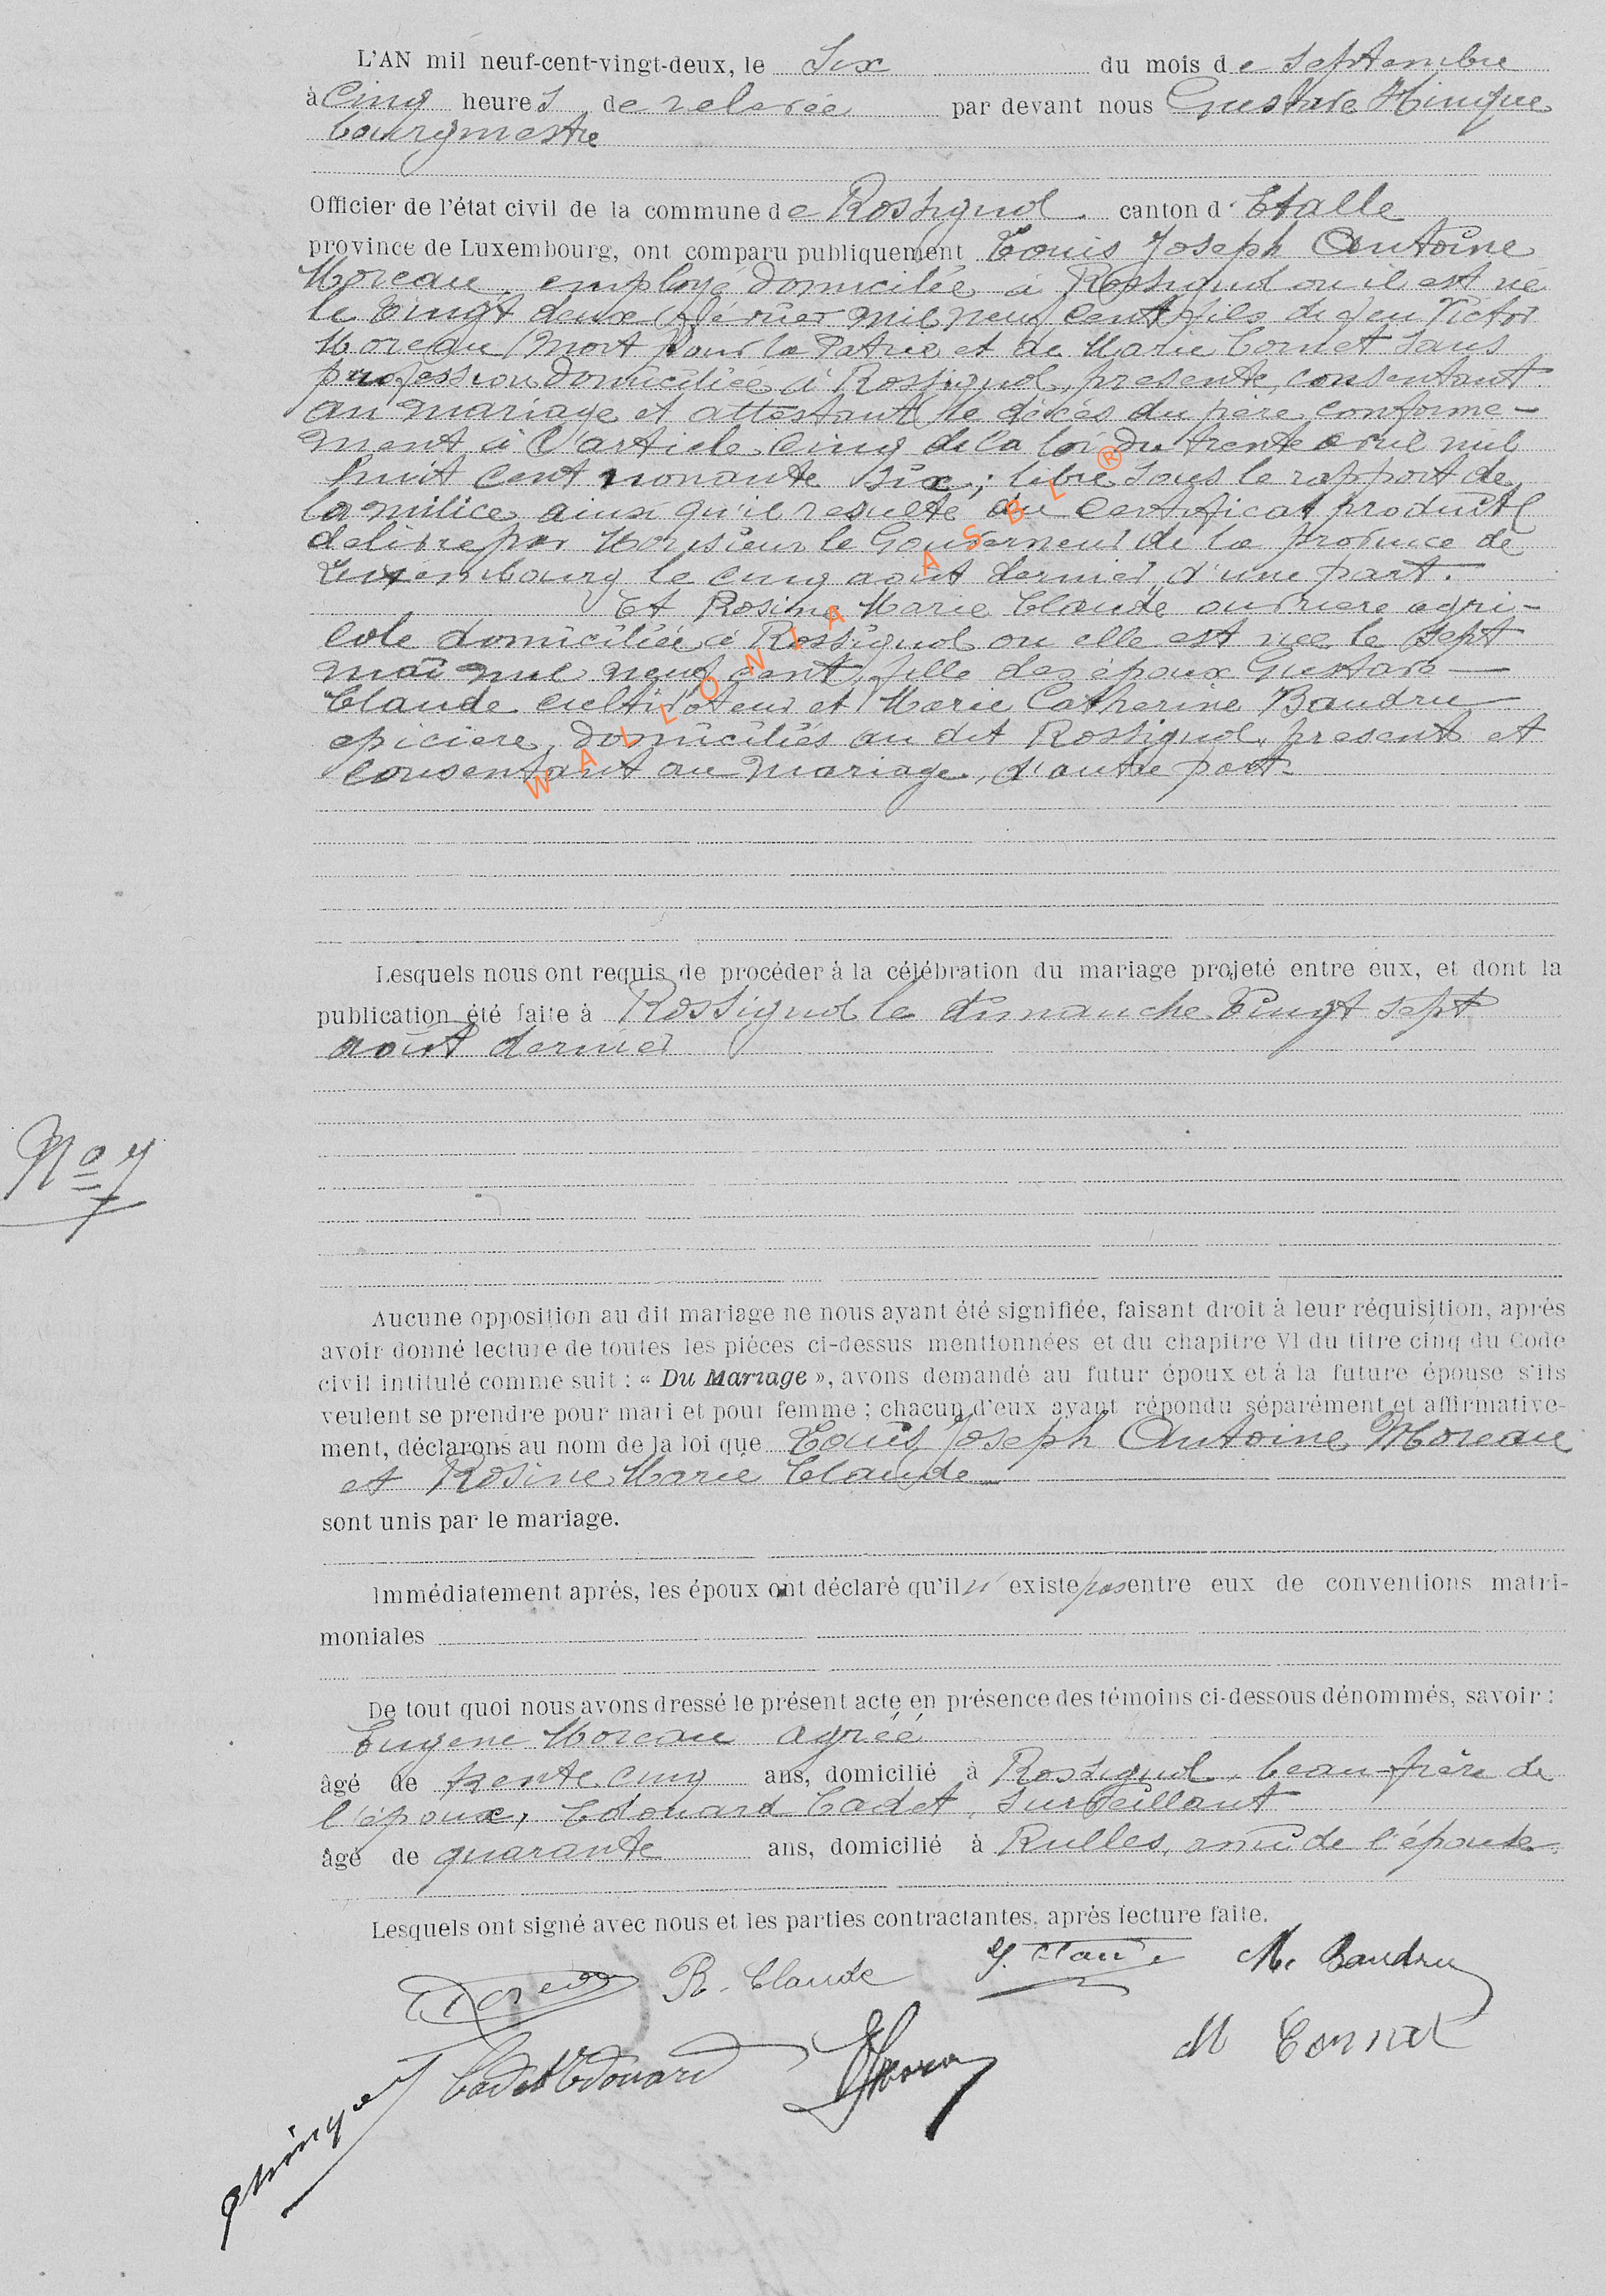 L'AN mil neuf-cent-vingt-deux, le Six du mois de Septembre
à Cinq heures de relevée par devant nous Gustave Hinque
bourgmestre
Officier de l'état civil de la commune de Rossignol canton d'Etalle
province de Luxembourg, ont comparu publiquement Louis Joseph Antoine
Moreau, employé domicilée à Rossignol ou il est né
le vingt deux février mil neuf cent, fils de feu Victor
Moreau mort pour la Patrie et de Marie Cornet sans
profession domiciliée à Rossignol, présente, consentant
au mariage et attestant le décès du père conforme-
ment à l'article cinq de la loi du trente avril mil
huit cent nonante six ; libre sous le rapport de
la milice ainsi qu'il resulte du Certificat produit
delivré par Monsieur le Gouverneur de la province de
Luxembourg le cinq aout dernier, d'une part.
Et Rosine Marie Claude ouvriere agri-
cole domiciliée à Rossignol ou elle est née le sept
mai mil neuf cent, fille des époux Gustave
Claude cultivateur et Marie Catherine Baudru
epiciere, domiciliés au dit Rossignol, present et
consentant au mariage, d'autre part.
WALLONIA ASBL ®
Lesquels nous ont requis de procéder à la célébration du mariage projeté entre eux, et dont la
publication été faite à Rossignol le dimanche vingt sept
août dernier
No 7
Aucune opposition au dit mariage ne nous ayant été signifiée, faisant droit à leur réquisition, après
avoir donné lecture de toutes les pièces ci-dessus mentionnées et du chapitre VI du titre cinq du Code
civil intitulé comme suit : « Du Mariage », avons demandé au futur époux et à la future épouse s'ils
veulent se prendre pour mari et pour femme ; chacun d'eux ayant répondu séparément et affirmative-
ment, déclarons au nom de la loi que Louis Joseph Antoine Moreau
et Rosine Marie Claude
sont unis par le mariage.
Immédiatement après, les époux ont déclaré qu'il n' existe pas entre eux de conventions matri-
moniales
De tout quoi nous avons dressé le présent acte en présence des témoins ci-dessous dénommés, savoir :
Eugene Moreau agréé
âgé de trente cinq ans, domicilié à Rossignol, beau-frère de
l'époux, Edouard Cadet, surveillant
âgé de quarante ans, domicilié à Rulles, ami de l'épouse
Lesquels ont signé avec nous et les parties contractantes, après lecture faite.
R. Claude G. Claude M. Baudru
Cadet Edouard M Cornet